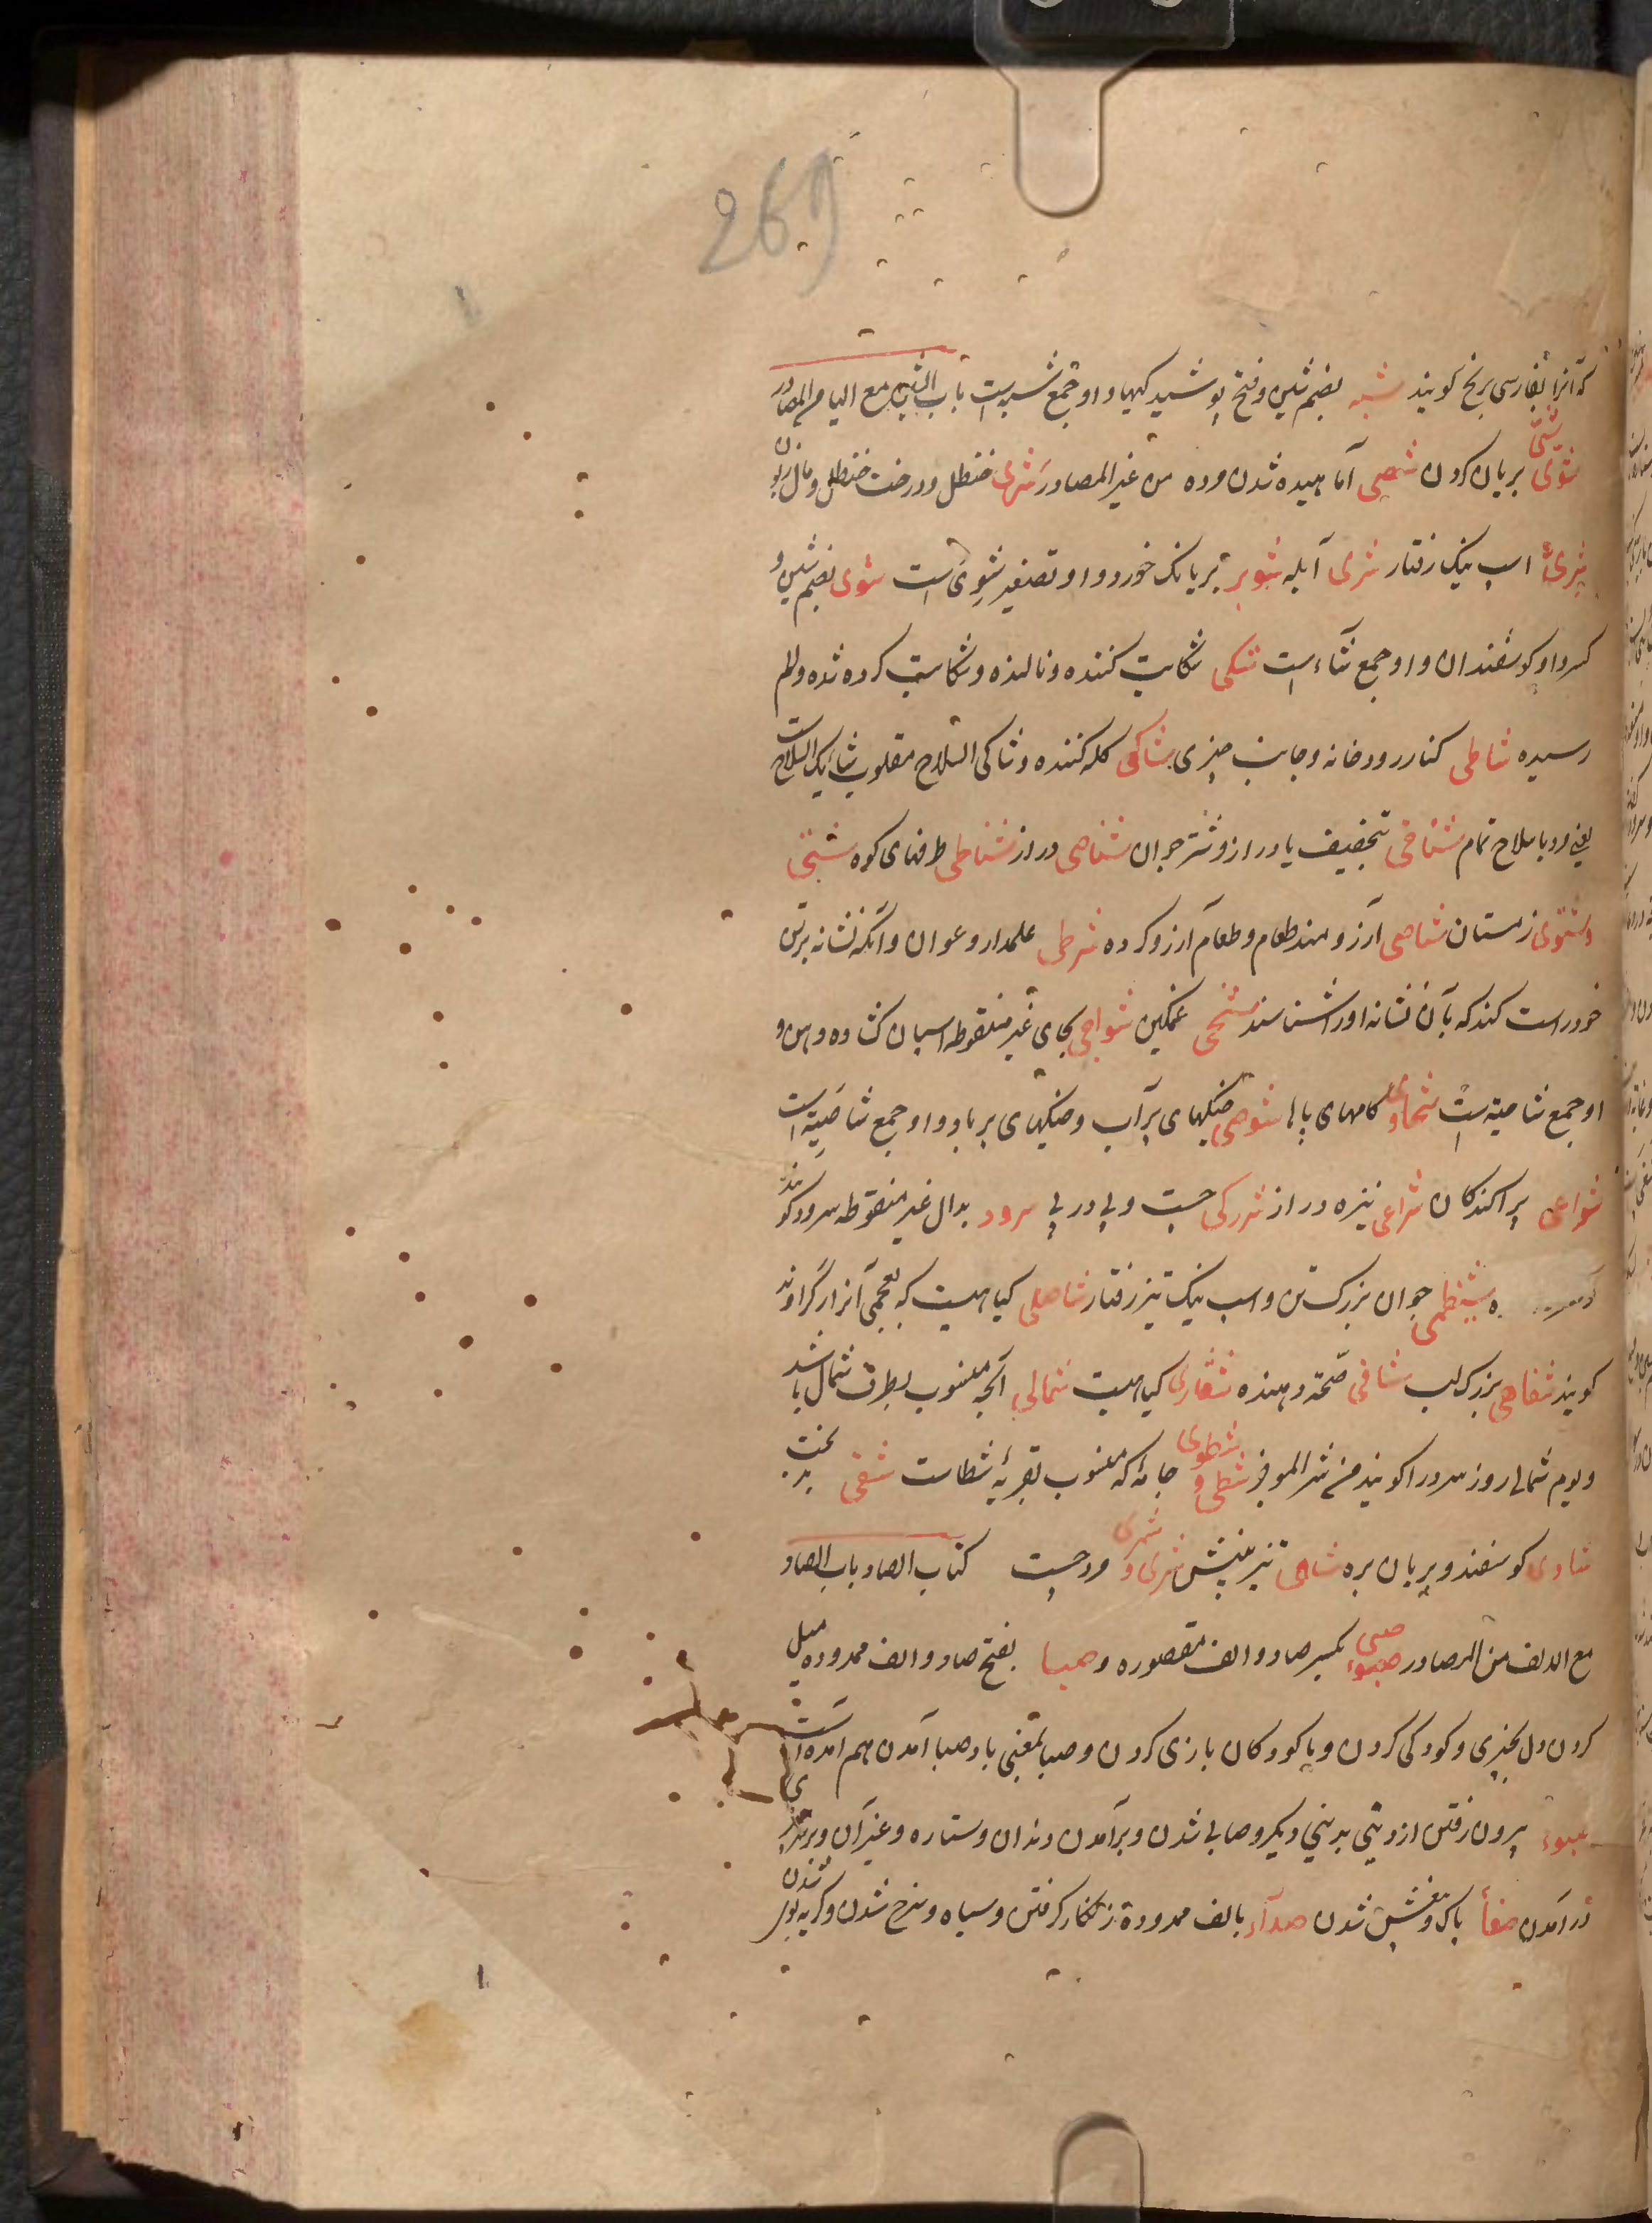 269
که آنرا بفارسی برنج کویند شبه بضم شین وفتح پوشیدکیها واو جمع شبهه است باب الشین مع الیا من المصادر
شیّ شوی بریان کردن شصی آماهیده شدن مرده من غیر المصادر شری حنظل ودرخت حنظل ومال زبون
شریّ اسب نیک رفتار شری آبله شویر بریانک خورد واو تصغیر شوی است شوی بضم شین و
کسر واو کوسفندان واو جمع شاء است شکی شکایت کننده ونالنده وشکایت کرده شده والم
رسیده شاطی کنار رودخانه وجانب چیزی شاکی کله کننده وشاکی السلاح مقلوب شایک السلاح است
یعنی مرد با سلاح تمام شناحی بتخفیف یا دراز وشتر جوان شناصی دراز شناظی طرفهای کوه شتی
وشتوی زمستان شاهی آرزومند طعام وطعام آرزو کرده شرطی علمدار وعوان وآنکه نشانه برتن
خود راست کند که بآن نشانه او را شناسند شجی غمکین شواحی بحای غیر منقوطه اسبان کشاده دهن و
او جمع شاحیة است شحاوی کامهای پاها شوصی خیکهای پرآب وخیکهای پر باد واو جمع شاصیة است
شواعی پراکندکان شراعی نیزه دراز شررکی جست وپی در پی سرود بدال غیر منقوطه سرود کویند
شیظمی جوان بزرک تن واسب نیک تیز رفتار شاصلی کیاهیست که بعجمی آنرا رکراوند
کویند شفاهی بزرک لب شافی صحة دهنده شقاری کیاهیست شمالی آنچه منسوب بطرف شمال باشد
ویوم شمالی روز سرد را کویند شطی و شطوی جامهٔ که منسوب بقریهٔ شطاست شقی بدبخت
شاوی کوسفند وبریان بره شاهی تیز بینش شری و شمری مرد جست کتاب الصاد باب الصاد
مع الالف من المصادر صبی صبوء بکسر صاد والف مقصوره وصبا بفتح صاد والف ممدوده میل
کردن دل بچیزی وکودکی کردن وبا کودکان بازی کردن وصبا بمعنی باد صبا آمدن هم آمده است
صبوء بیرون رفتن از دینی بدینی دیکر وصابی شدن وبرآمدن دندان وستاره وغیر آن وبرسر
درآمدن صفأ پاک وبی غش شدن صدآء بالف ممدودة زنکار کرفتن وسیاه وسرخ شدن